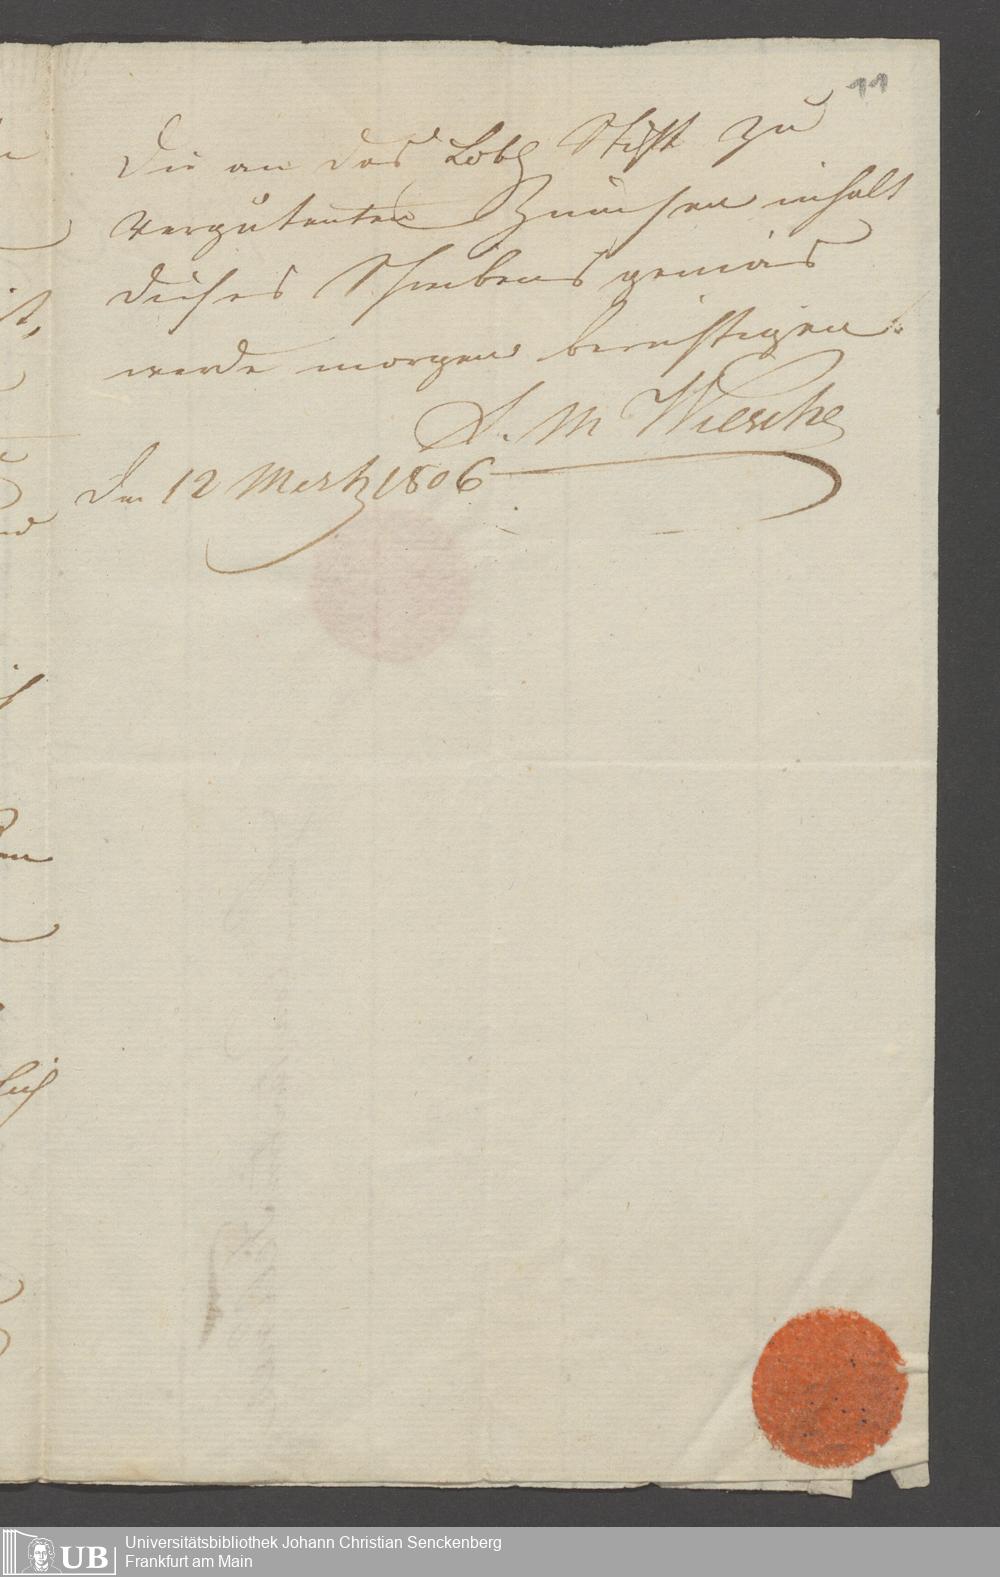 11
Die an das Lobl Stift zu
Vergütenten Zinnsen inhalt
dieses Schreibens gemäs
werde morgen berichtigen.
S. M Wiesche
Den 12 Mertz 1806
UB
Universitätsbibliothek Johann Christian Senckenberg
Frankfurt am Main